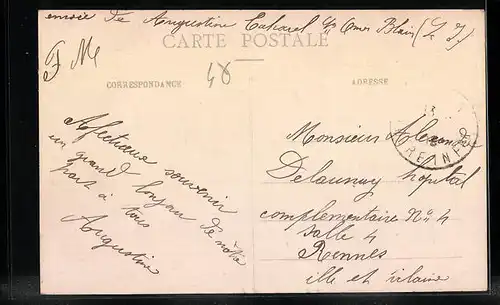 envoie de Augustine Caharel Omer Blain (L. I.)
CARTE POSTALE
F M
48
CORRESPONDANCE
ADRESSE
Afectueux souvenir
un grand bonjour de nôtre
part à tous
Augustine
RENNES
Monsieur Alexandre
Delaunay hopital
complementaire N: 4
salle 4
Rennes
ille et vilaine